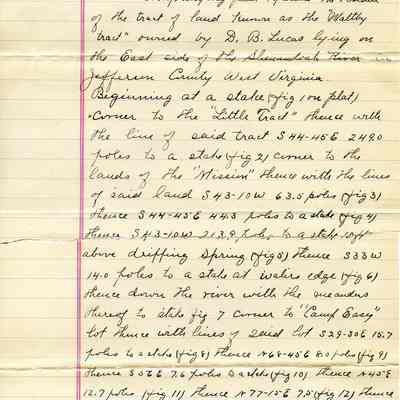 of the tract of land known as the "Maltby
tract" owned by D. B. Lucas lying on
the East side of the Shenandoah River in
Jefferson County West Virginia.
Beginning at a stake (fig 1 on plat)
Corner to the "Little Tract" thence with
the line of said tract S 44-45 E 249.0
poles to a stake (fig 2) corner to the
lands of the "Mission" thence with the lines
of said land S 43-10 W 63.5 poles (fig 3)
thence S 44-45 E 44.5 poles to a stake (fig 4)
thence S 43-10 W 213.9 poles to a stake 10 ft
above dripping Spring (fig 5) thence S 33 W
14.0 poles to a stake at waters edge (fig 6)
thence down the river with the meanders
thereof to stake fig 7 corner to "Camp Easy"
lot thence with lines of said lot S 29-30 E 15.7
poles to a stake (fig 8) thence N 68-45 E 8.0 poles (fig 9)
thence S 05 E 7.6 poles to a stake (fig 10) thence N 45 E
12.7 poles (fig 11) thence N 77-15 E 7.5 (fig 12) thence